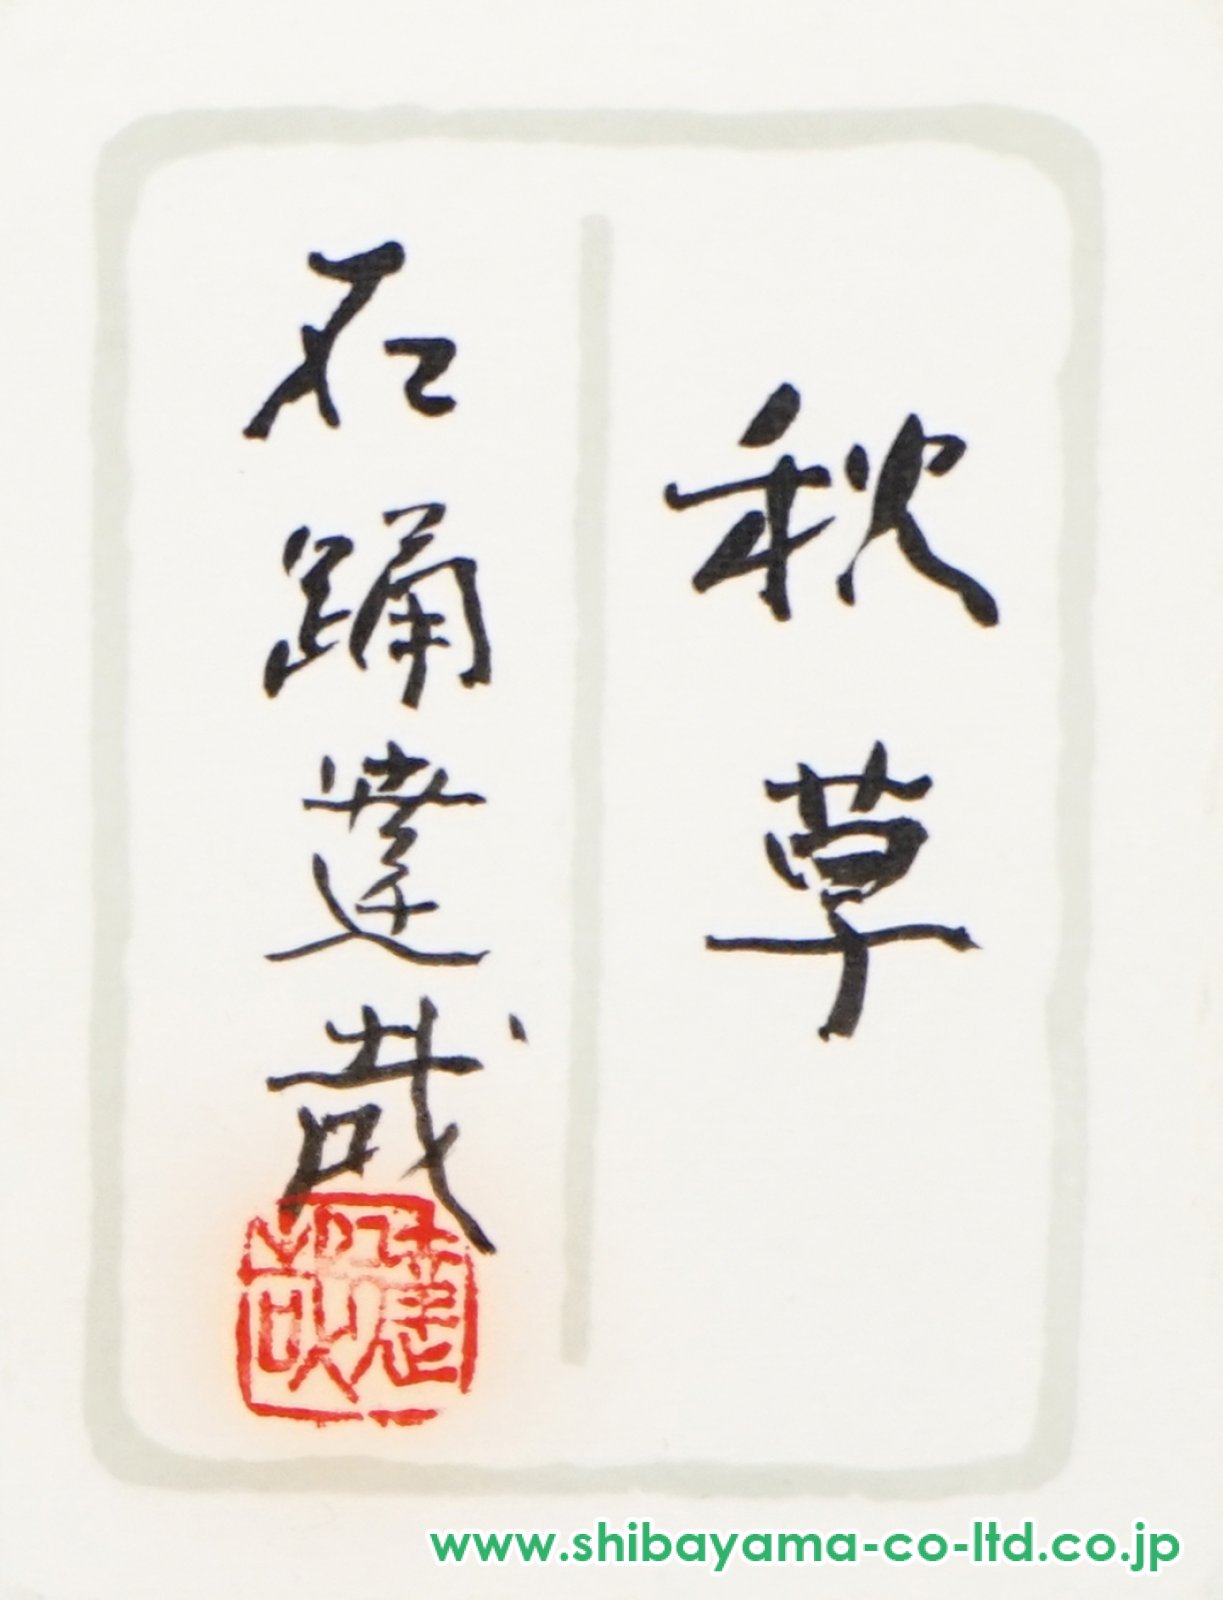 秋草
石踊達哉
達哉
www.shibayama-co-ltd.co.jp